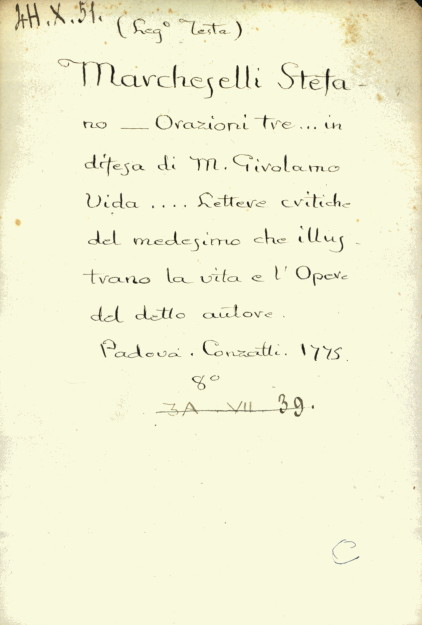 4H.X.51.
(Leg.º Testa)
Marcheselli Stefa-
no — Orazioni tre... in
difesa di M. Girolamo
Vida .... Lettere critiche
del medesimo che illus-
trano la vita e l'Opere
del detto autore.
Padova. Conzatti. 1775.
8º
3A VII 39.
C